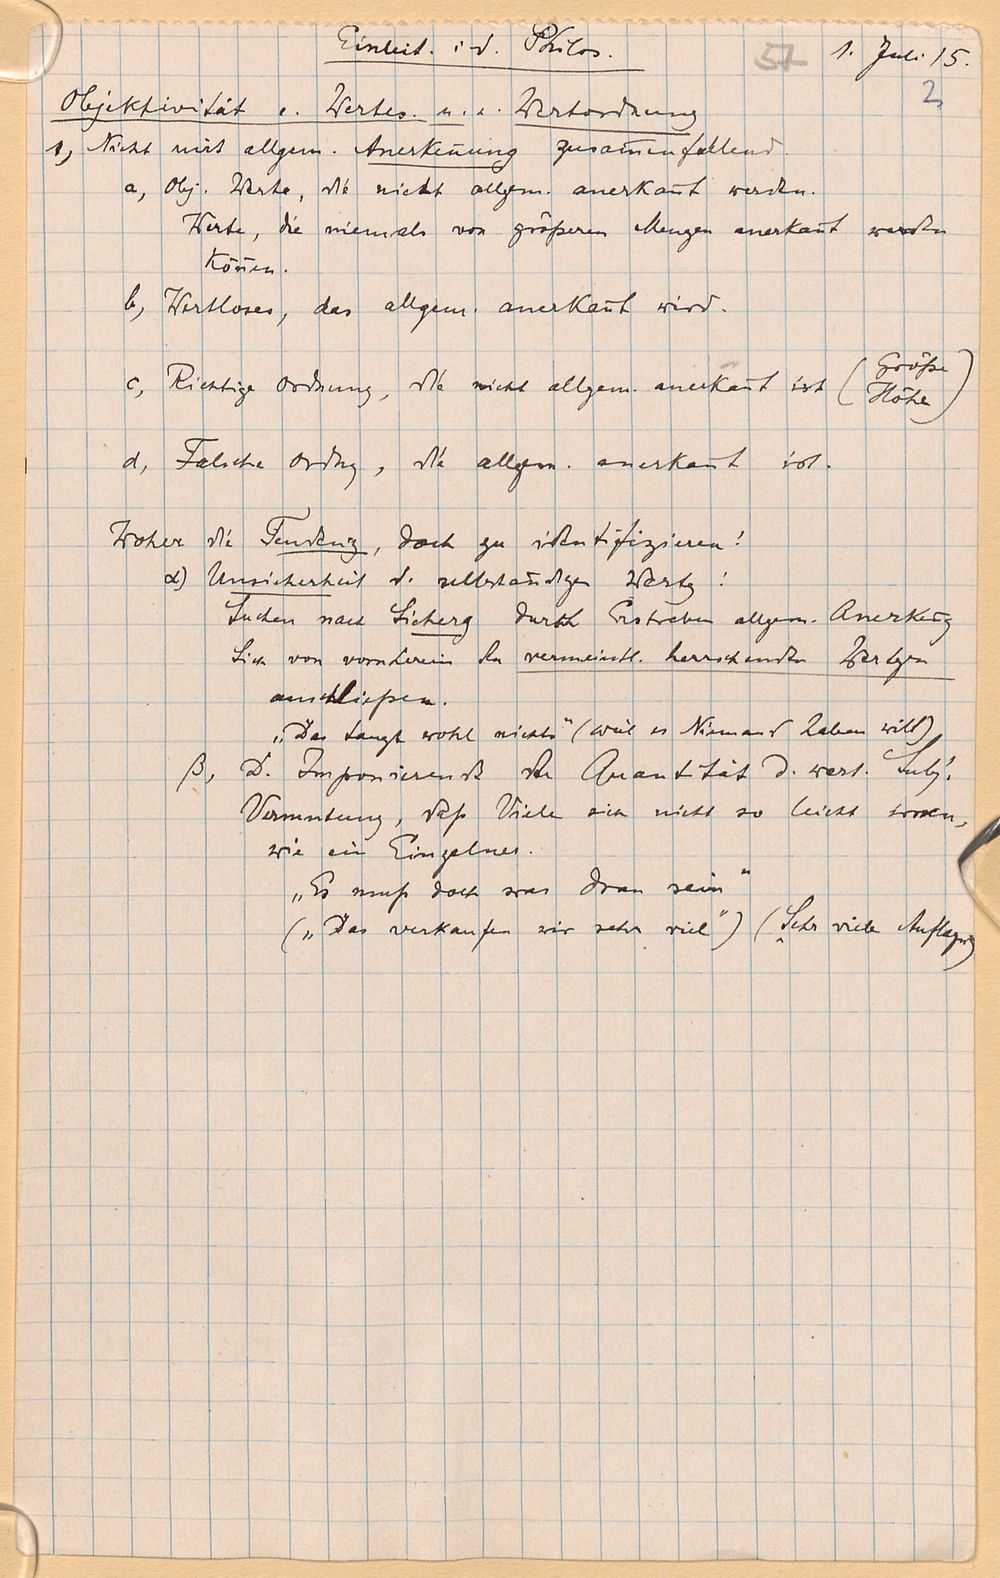 Einleit. i. d. Philos. 57 1. Juli 15.
2
Objektivität e. Wertes. u. e. Wertordnung
1, Nicht mit allgem. Anerken̄ung zusam̄enfallend.
a, Obj. Werte, die nicht allgem. anerkan̄t werden.
Werte, die niemals von größeren Mengen anerkan̄t werden
kön̄en.
b, Wertloses, das allgem. anerkan̄t wird.
c, Richtige Ordnung, die nicht allgem. anerkan̄t ist (Größe
Höhe)
d, Falsche Ordng, die allgem. anerkan̄t ist.
Woher die Tendenz, doch zu identifizieren!
α) Unsicherheit d. selbständigen Wertg:
Suchen nach Sicherg durch Erstreben allgem. Anerken̄g
Sich von vornherein den vermeintl. herrschenden Wertgen
anschließen.
„Das taugt wohl nichts" (weil es Niemand haben will)
β, D. Imponierende der Quantität d. wert. Subj.
Vermutung, daß Viele sich nicht so leicht irren,
wie ein Einzelner.
„Es muß doch was dran sein"
(„Das verkaufen wir sehr viel") (Sehr viele Auflagen)